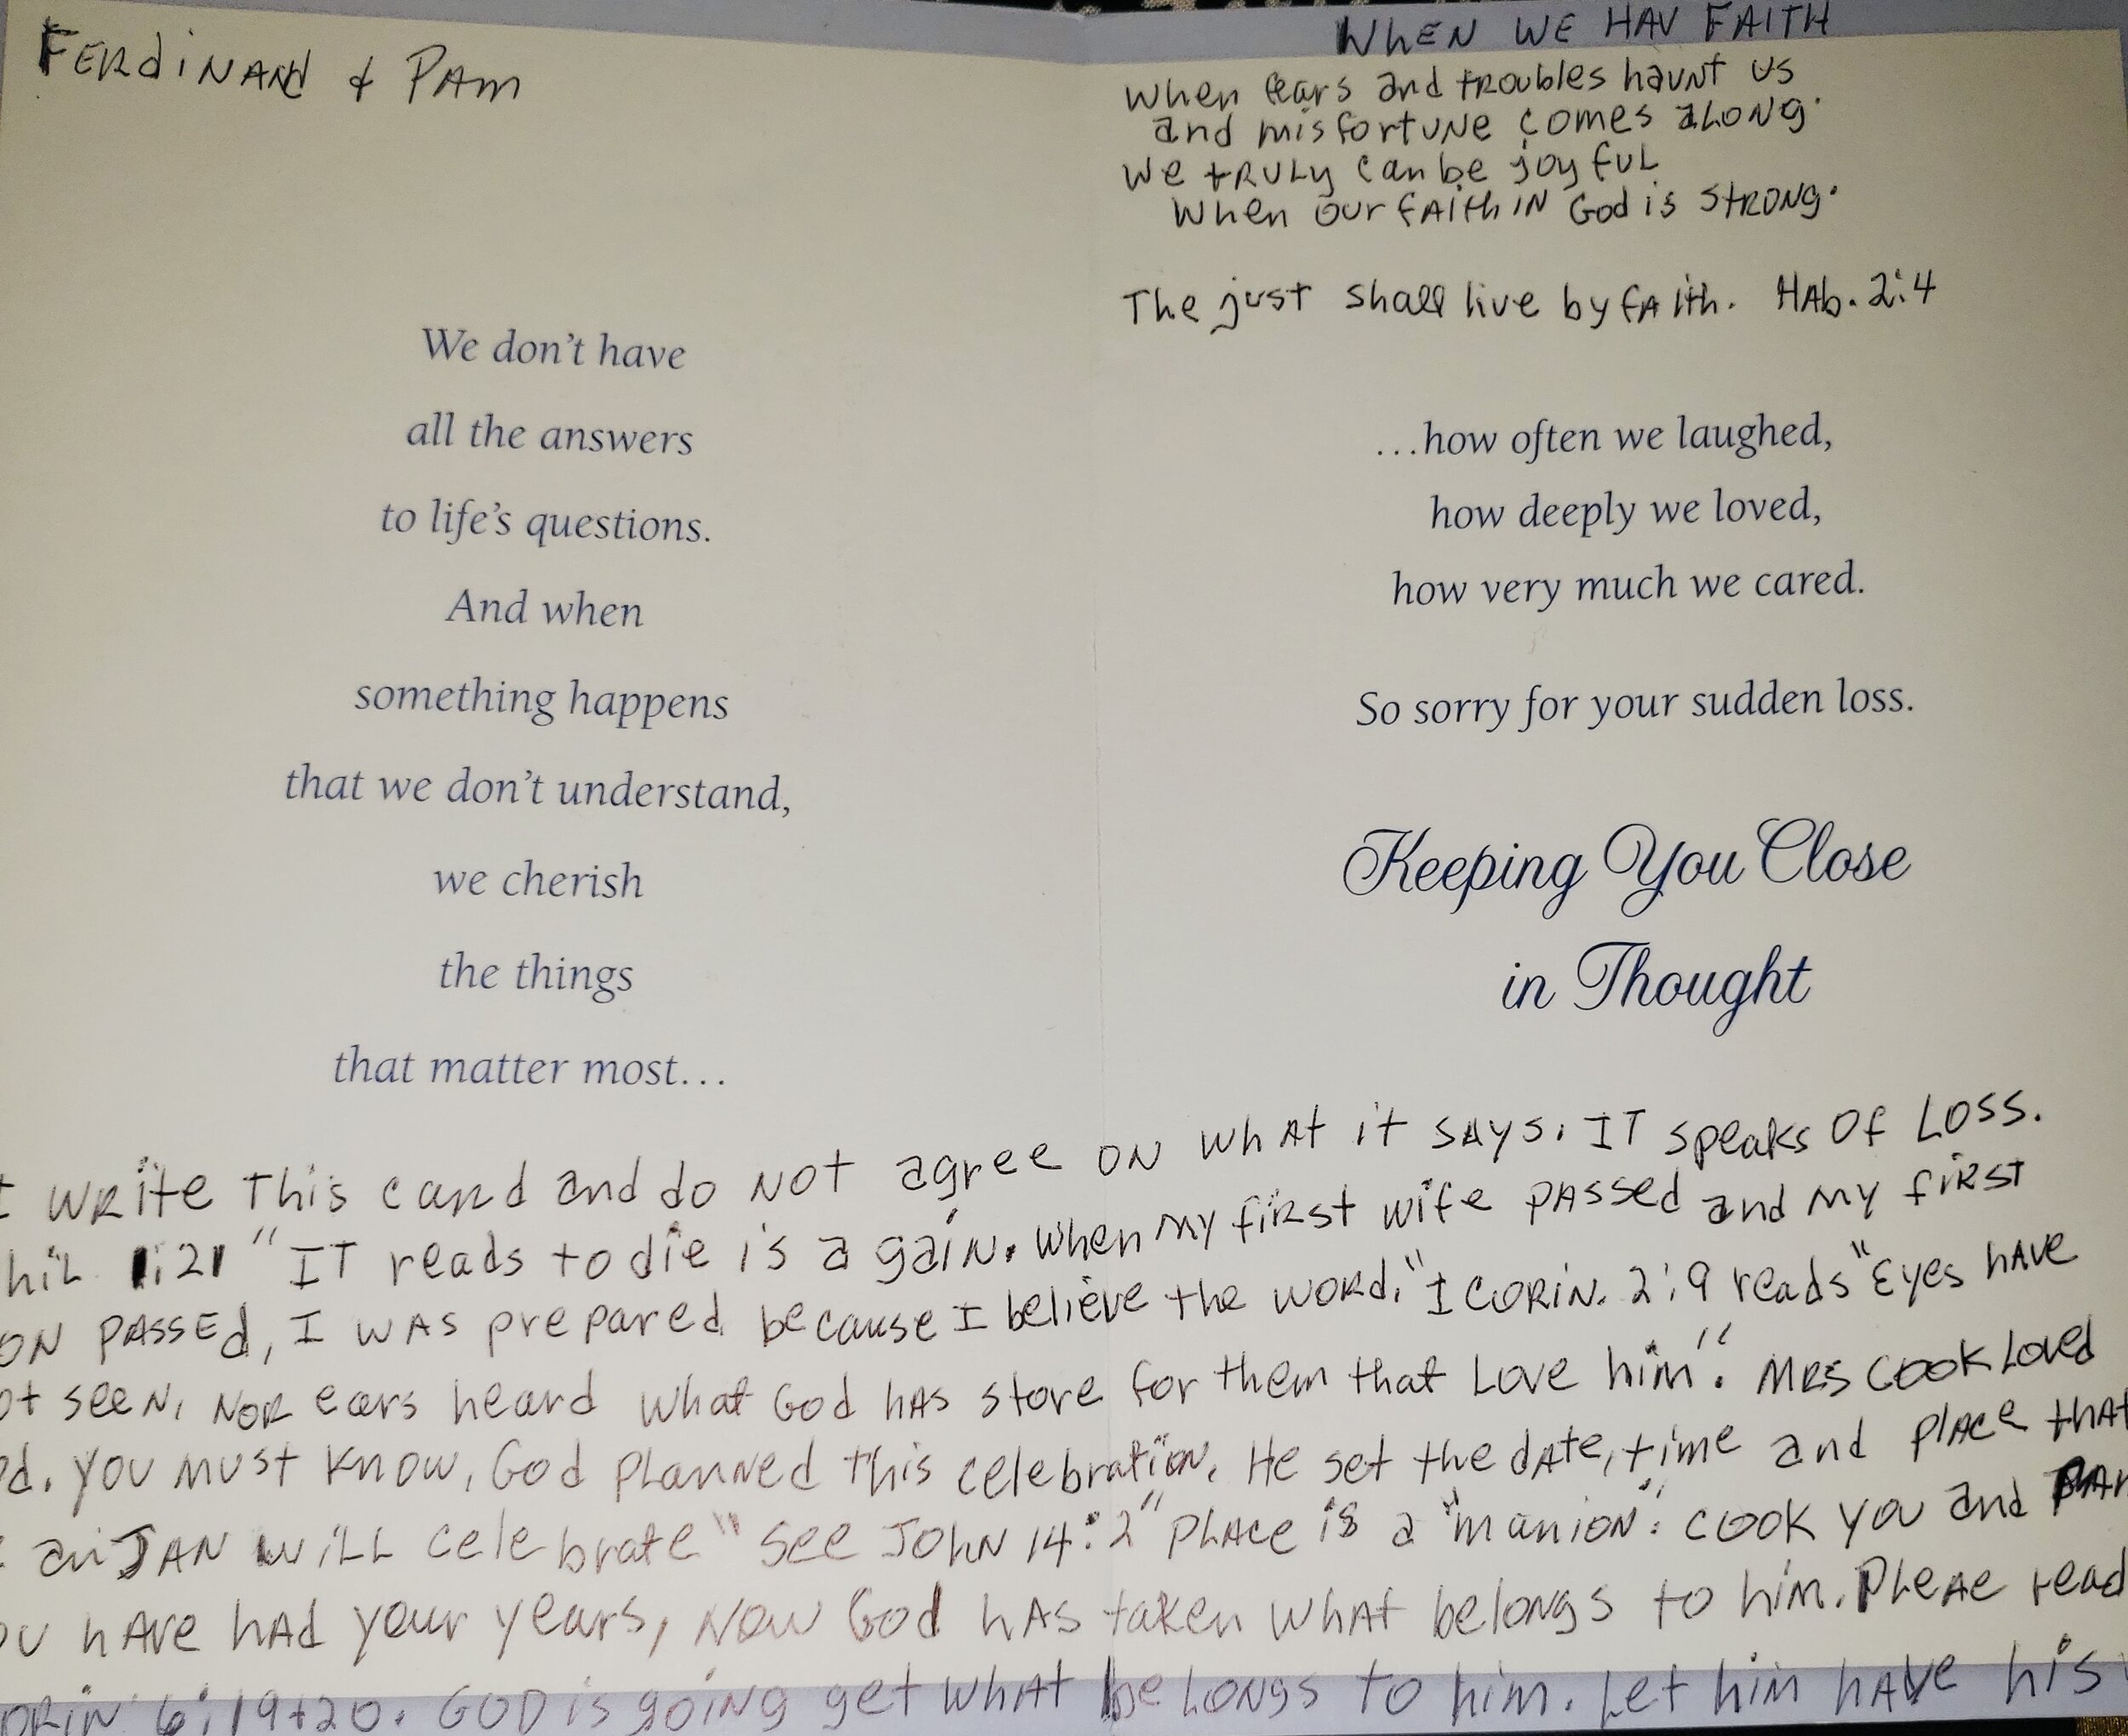 FERdiNANd & PAm
We don't have
all the answers
to life's questions.
And when
something happens
that we don't understand,
we cherish
the things
that matter most...
WHEN WE HAV FAITH
When fears and troubles haunt us
and misfortune comes along.
We truly can be joyful
When our faith in God is strong.
The just shall live by faith. HAb. 2:4
...how often we laughed,
how deeply we loved,
how very much we cared.
So sorry for your sudden loss.
Keeping You Close
in Thought
I write This card and do NOT agree ON what it says. IT speaks Of Loss.
hil 1:21 "IT reads to die is a gain. When my first wife passed and my first
ON PASSEd, I was prepared because I believe the word." I CORIN. 2:9 reads "Eyes have
ot seen, NOR ears heard what God has store for them that Love him". MRS COOK Loved
d. You must know, God planned this celebration. He set the date, time and place that
an JAN will celebrate "see John 14:2" Place is a "manion". COOK you and PAM
ou have had your years, Now God has taken what belongs to him. Pleae read
ORIN 6:19+20. GOD is going get what belongs to him. Let him have his